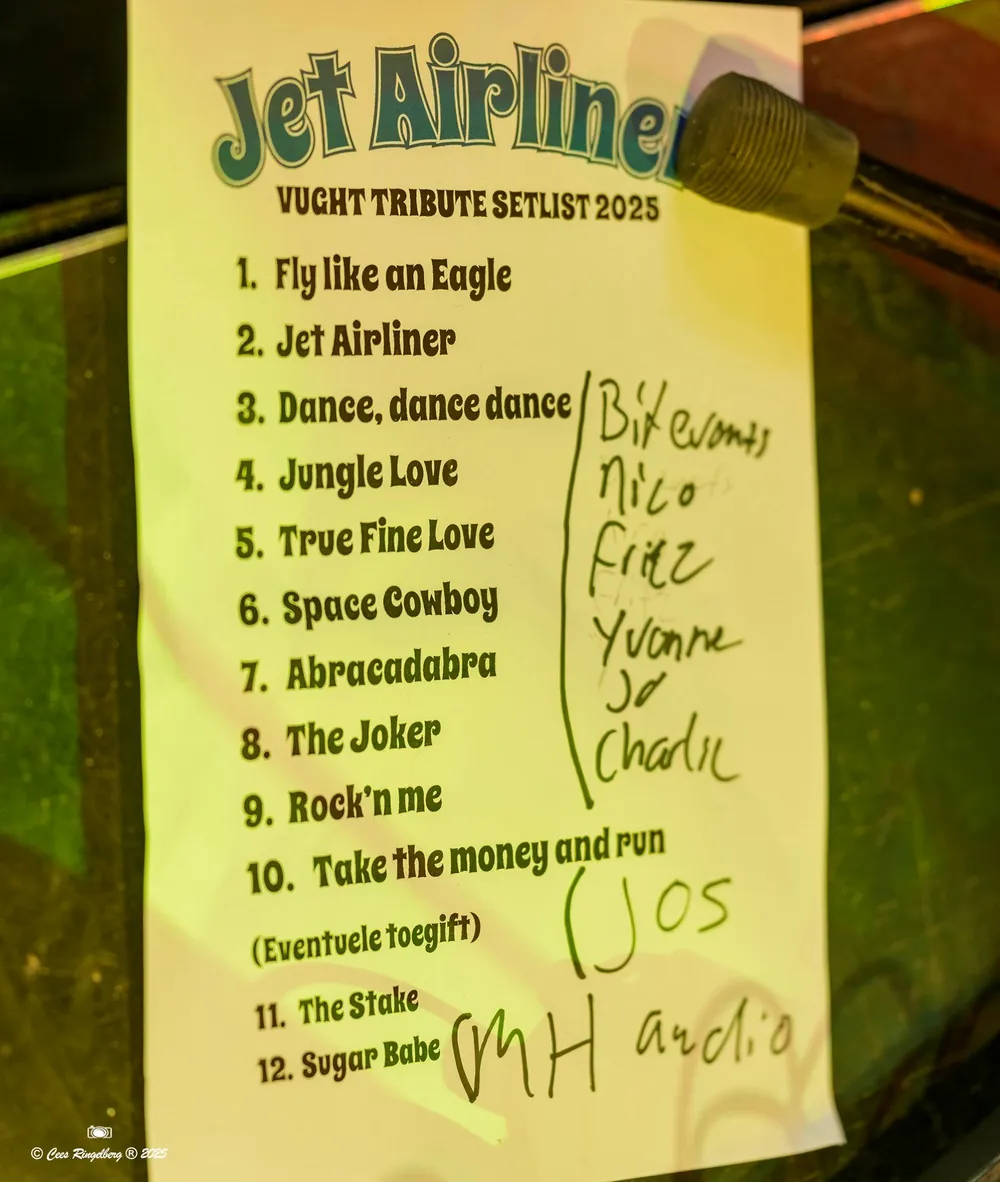 Jet Airliner
VUGHT TRIBUTE SETLIST 2025
1. Fly like an Eagle
2. Jet Airliner
3. Dance, dance dance
4. Jungle Love
5. True Fine Love
6. Space Cowboy
7. Abracadabra
8. The Joker
9. Rock'n me
10. Take the money and run
(Eventuele toegift)
11. The Stake
12. Sugar Babe
nico
Yvonne
Jo
Charlie
Jos
MH audio
© Cees Ringelberg ® 2025